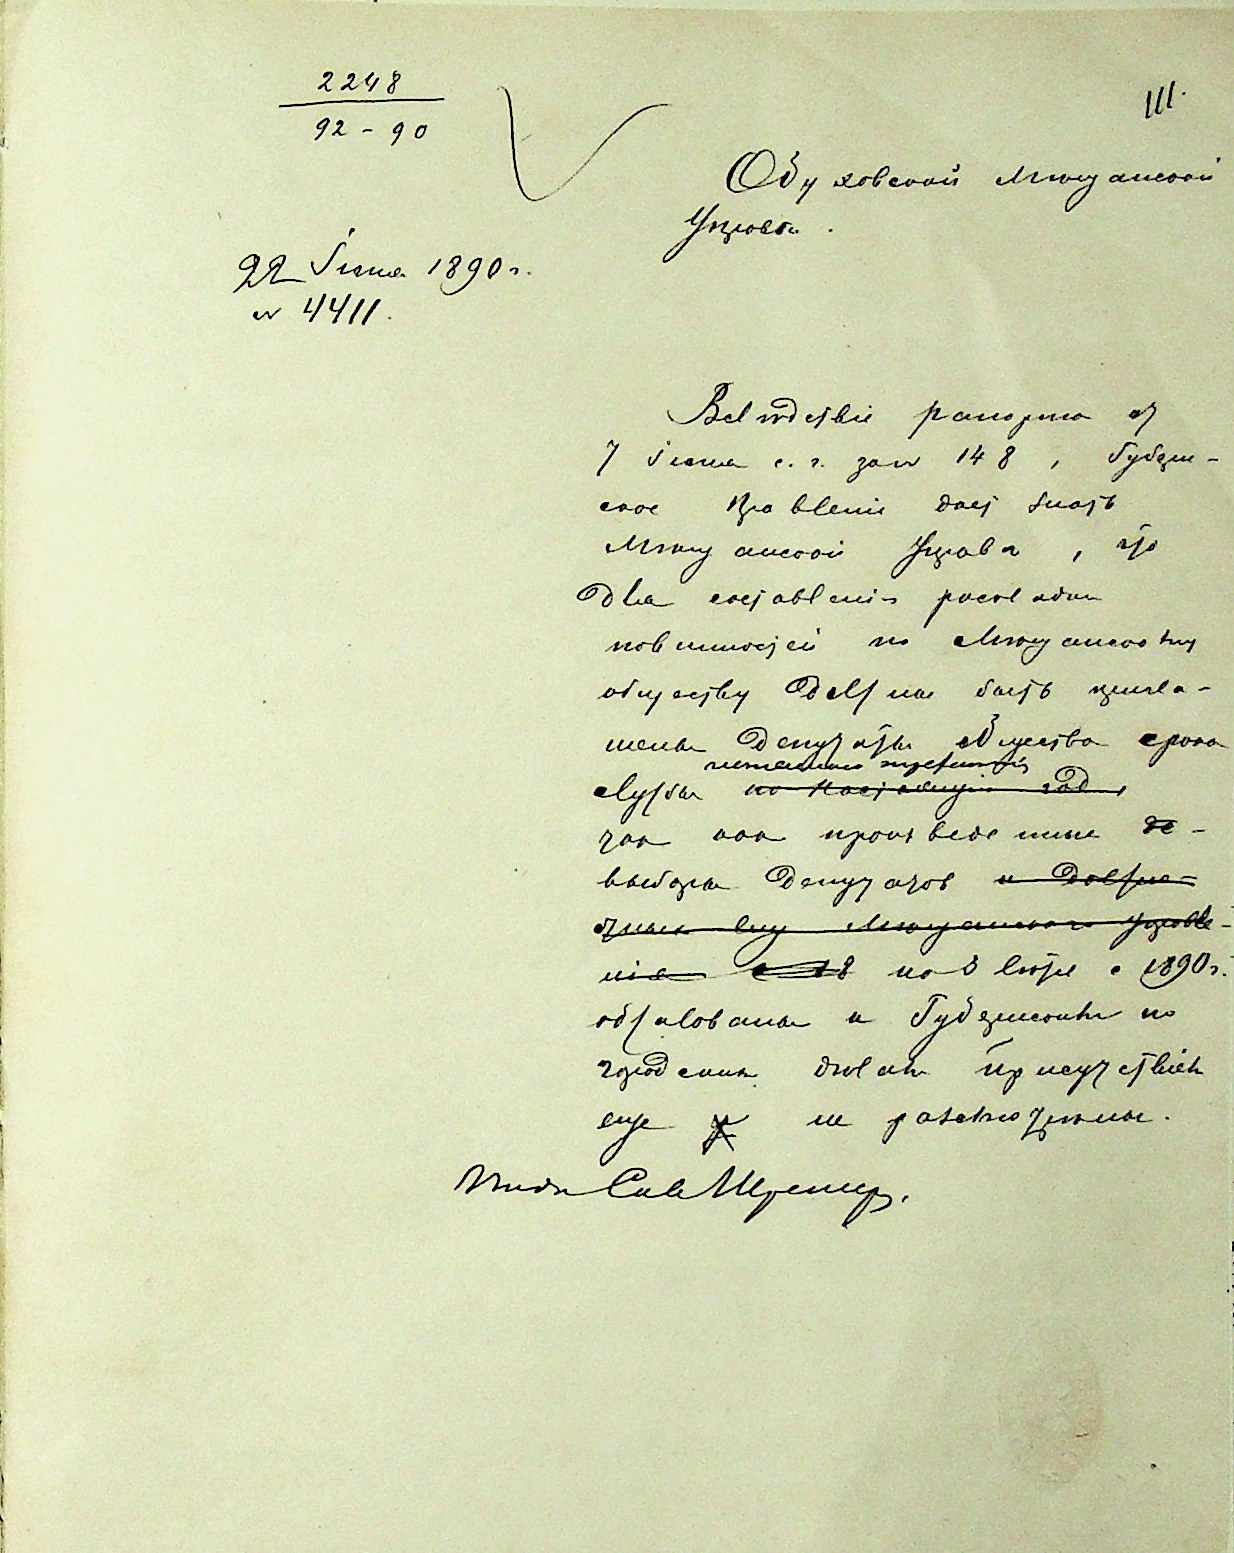 2248
92 - 90
III.
Обуховской Мѣщанской
Управѣ.
22 Іюня 1890 г.
№ 4411.
Вслѣдствіе рапорта отъ
7 Іюня с. г. за № 148, Губерн-
ское Правленіе даетъ знать
Мѣщанской Управѣ, что
для составленія раскладки
повинностей по Мѣщанскому
обществу должны быть пригла-
шены депутаты общества срока
службы по настоящій годъ,
такъ какъ произведенные де-
выборы депутатовъ и должно-
стныхъ лицъ Мѣщанскаго Управле-
нія на 3 лѣтіе с 1890 г.
обжалованы и Губернскимъ по
городскимъ дѣламъ Присутствіемъ
еще не разсмотрѣны.